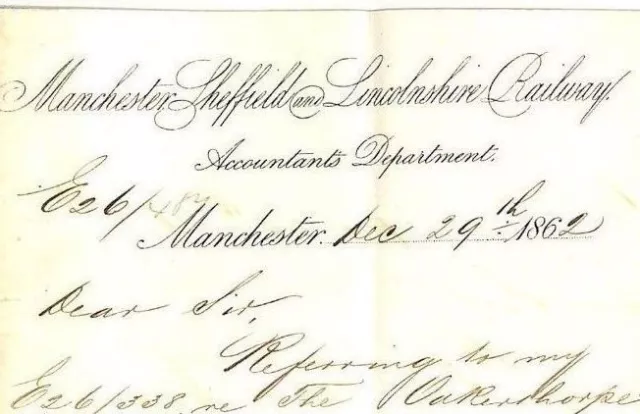 Manchester, Sheffield and Lincolnshire Railway.
Accountant's Department.
E26/487
Manchester. Dec 29th 1862
Dear Sir,
Referring to my
E26/338, re The Oakerthorpe